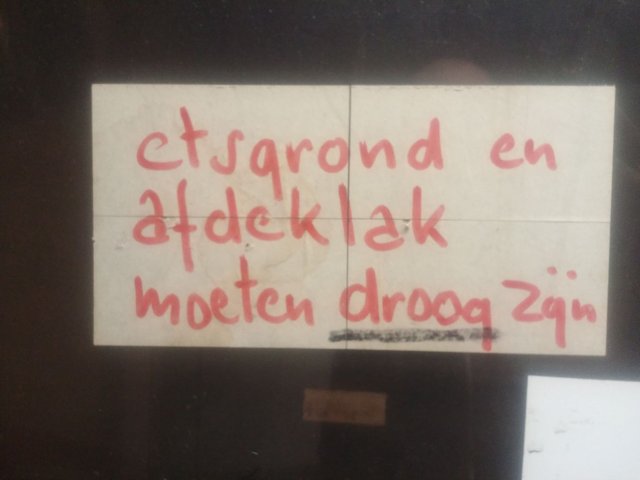 etsgrond en
afdeklak
moeten droog zijn